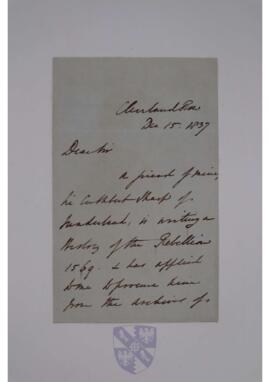 Cleveland Row
Dec 15. 1837
Dear Sir
a friend of mine,
Sir Cuthbert Sharp of
Sunderland, is writing a
History of the Rebellion
1569. & has applied
to me to procure him
from the archives of